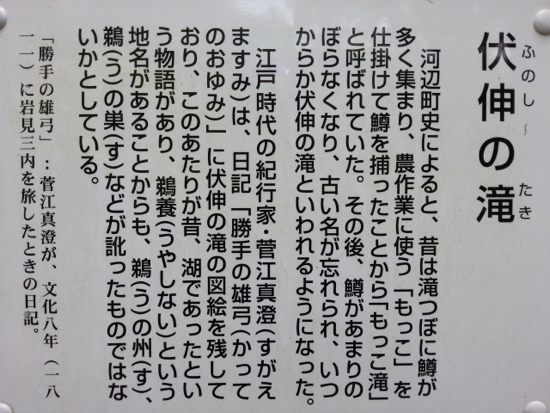 伏伸の滝
ふのし～ たき
河辺町史によると、昔は滝つぼに鱒が
多く集まり、農作業に使う「もっこ」を
仕掛けて鱒を捕ったことから「もっこ滝」
と呼ばれていた。その後、鱒があまりの
ぼらなくなり、古い名が忘れられ、いつ
からか伏伸の滝といわれるようになった。
江戸時代の紀行家・菅江真澄（すがえ
ますみ）は、日記「勝手の雄弓（かって
のおゆみ）」に伏伸の滝の図絵を残して
おり、このあたりが昔、湖であったとい
う物語があり、鵜養（うやしない）という
地名があることからも、鵜（う）の州（す）、
鵜（う）の巣（す）などが訛ったものではな
いかとしている。
「勝手の雄弓」：菅江真澄が、文化八年（一八
一一）に岩見三内を旅したときの日記。